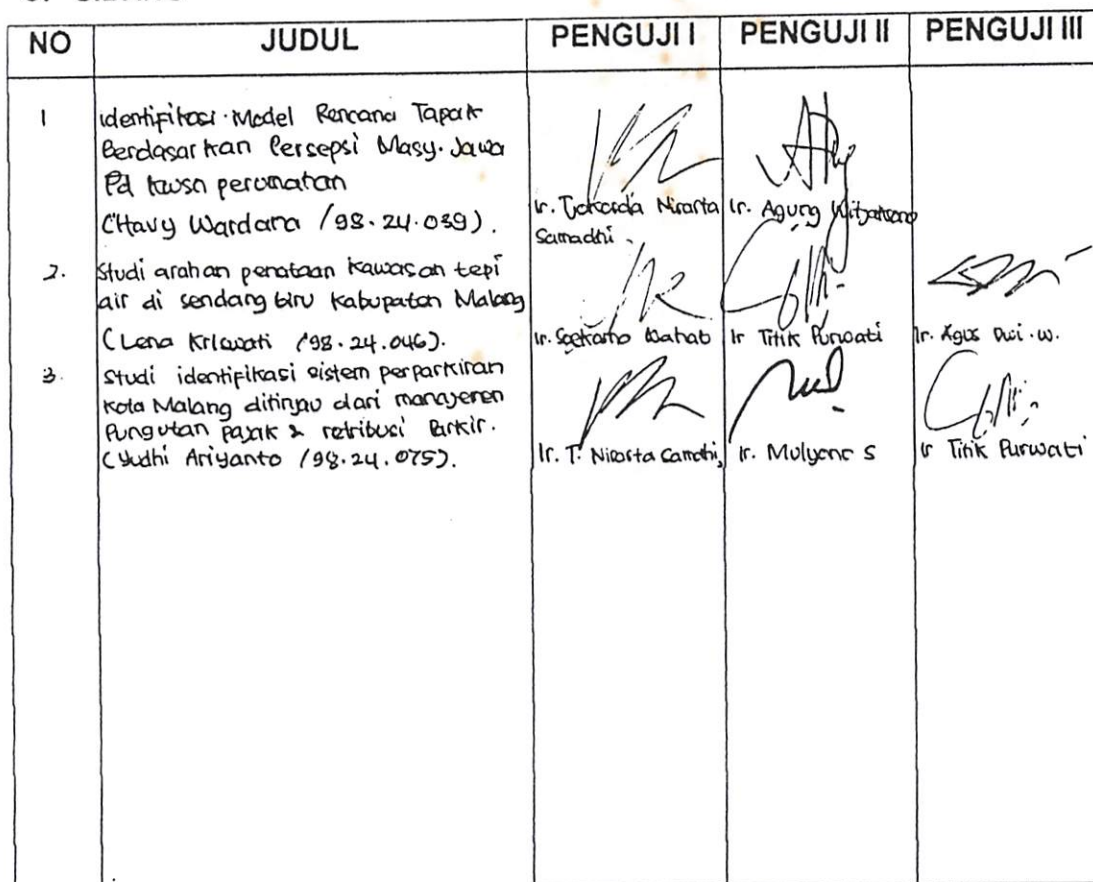 NO JUDUL PENGUJI I PENGUJI II PENGUJI III
1 identifikasi Model Rencana Tapak
Berdasarkan Persepsi Masy. Jawa
Pd kwsn perumahan
(Havy Wardana /98.24.039).
Ir. Tjokorda Nirarta Samadhi. Ir. Agung Witjaksono
2. Studi arahan penataan kawasan tepi
air di sendang biru Kabupaten Malang
(Lena Kriswati /98.24.046).
Ir. Soekarno Wahab Ir Titik Purwati Ir. Agus Dwi.W.
3. Studi identifikasi sistem perparkiran
Kota Malang ditinjau dari manajemen
Pungutan Pajak & retribusi Parkir.
(Yudhi Ariyanto /98.24.075).
Ir. T. Nirarta Samadhi, Ir. Mulyono S Ir Titik Purwati